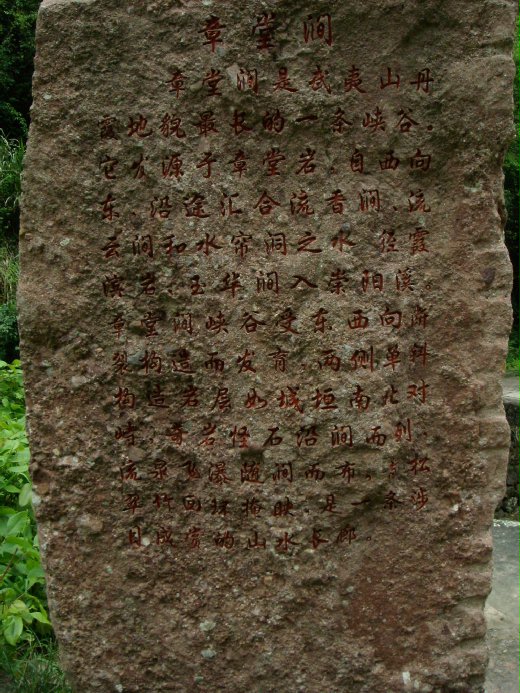 章堂涧
章堂涧是武夷山丹
霞地貌最长的一条峡谷。
它发源于章堂岩,自西向
东、沿途汇合流香涧、流
云涧和水帘洞之水 径霞
滨岩、玉华涧入崇阳溪。
章堂涧峡谷受东西向断
裂构造而发育,两侧单斜
构造岩层如城垣南北对
峙,奇岩怪石沿涧而列、
流泉飞瀑随涧而布,青松
翠竹回环掩映,是一条涉
目成赏的山水长廊。